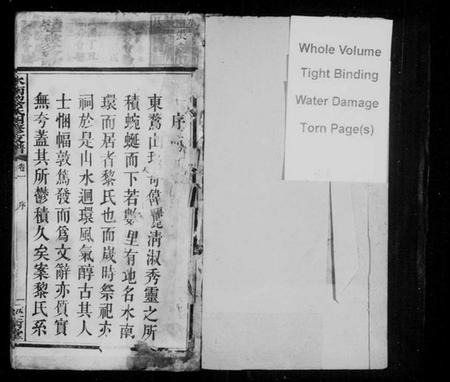 序
東鶩山瑰奇偉麗清淑秀靈之所
積蜿蜒而下若數里有地名水南
環而居者黎氏也而歲時祭祀亦
祠於是山水迴環風氣醇古其人
士悃愊敦篤發而為文辭亦質實
無夸蓋其所鬱積久矣案黎氏系
卷一
序
Whole Volume
Tight Binding
Water Damage
Torn Page(s)